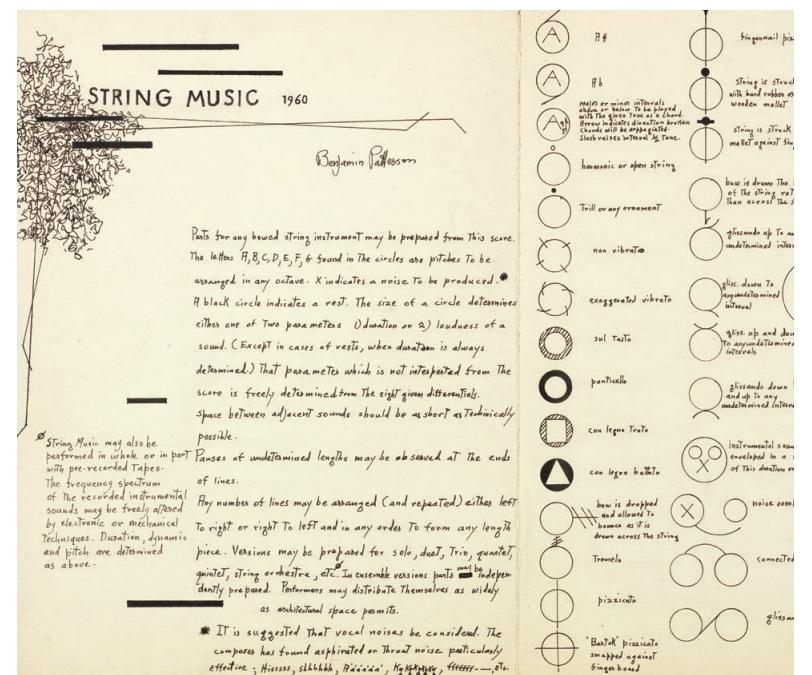 STRING MUSIC 1960
Benjamin Patterson
Parts for any bowed string instrument may be prepared from this score.
The letters A,B,C,D,E,F,G found in the circles are pitches to be
arranged in any octave. X indicates a noise to be produced.*
A black circle indicates a rest. The size of a circle determines
either one of two parameters 1) duration or 2) loudness of a
sound. (Except in cases of rests, when duration is always
determined.) That parameter which is not interpreted from the
score is freely determined from the eight given differentials.
Space between adjacent sounds should be as short as technically
possible.
Pauses of undetermined lengths may be observed at the ends
of lines.
Any number of lines may be arranged (and repeated) either left
to right or right to left and in any order to form any length
piece. Versions may be prepared for solo, duet, trio, quartet,
quintet, string orchestra, etc.ø In ensemble versions parts may be indepen-
dantly prepared. Performers may distribute themselves as widely
as architectural space permits.
* It is suggested that vocal noises be considered. The
composer has found asphirated or throat noise particularly
effective; Hisssss, shhhhhh,
ø String Music may also be
performed in whole or in part
with pre-recorded tapes.
The frequency spectrum
of the recorded instrumental
sounds may be freely altered
by electronic or mechanical
techniques. Duration, dynamic
and pitch are determined
as above.
A A♮
A Ab
major or minor intervals
above or below to be played
with the given tone as a chord.
Arrow indicates direction broken
chords will be arppegiated.
Slash raises interval ½ tone.
harmonic or open string
Trill or any ornament
non vibrato
exaggerated vibrato
sul tasto
ponticello
con legno trato
con legno battuto
bow is dropped
and allowed to
bounce as it is
drawn across the string
Tremolo
pizzicato
"Bartok" pizzicato
snapped against
fingerboard
fingernail piz
string is struck
with hard rubber o
wooden mallet
string is struck
mallet against fin
bow is drawn the l
of the string rat
than across the s
glissando up to an
undetermined inter
gliss. down to
any undetermined
interval
gliss. up and dow
to any undetermined
intervals
glissando down
and up to any
undetermined interv
instrumental sou
enveloped in a
of this duration o
X noise over
connected
gliss